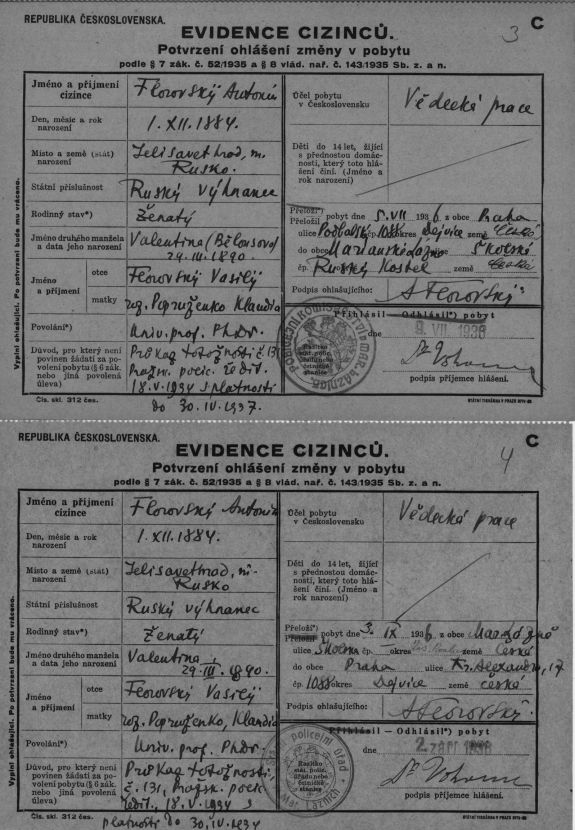 REPUBLIKA ČESKOSLOVENSKÁ.
3
C
EVIDENCE CIZINCŮ.
Potvrzení ohlášení změny v pobytu
podle § 7 zák. č. 52/1935 a § 8 vlád. nař. č. 143/1935 Sb. z. a n.
Vyplní ohlašující. Po potvrzení bude mu vráceno.
Jméno a příjmení cizince
Florovský Antonin
Den, měsíc a rok narození
1. XII. 1884.
Místo a země (stát) narození
Jelisavethrad, m.
Rusko.
Státní příslušnost
Ruský výhnanec
Rodinný stav*)
Ženatý
Jméno druhého manžela a data jeho narození
Valentina (Bělousova)
29. III. 1890.
Jméno a příjmení
otce
Florovský Vasilij
matky
roz. Popruženko Klavdia
Povolání*)
Univ. prof. PhDr.
Důvod, pro který není povinen žádati za povolení pobytu (§ 6 zák. nebo jiná povolená úleva)
Průkaz totožnosti č. 131
Pražsk. polic. ředit.
18. V. 1934 s platností
do 30. IV. 1937.
Čís. skl. 312 čes.
Účel pobytu v Československu
Vědecká prace
Děti do 14 let, žijící s přednostou domácnosti, který toto hlášení činí. (Jméno a rok narození)
Přeloží*) pobyt dne 5. VII 1936 z obce Praha
ulice Podbabsk. čp. 1088 okres Dejvice země Česká
do obce Marianské Lázně Školská
čp. Ruský Kostel země Česká
Podpis ohlašujícího:
A Florovský
Přihlásil — Odhlásil*) pobyt
dne 9. VII 1936
podpis příjemce hlášení.
Razítko stát. pol. úřadu nebo četnické stanice
STÁTNÍ TISKÁRNA V PRAZE
REPUBLIKA ČESKOSLOVENSKÁ.
4
C
EVIDENCE CIZINCŮ.
Potvrzení ohlášení změny v pobytu
podle § 7 zák. č. 52/1935 a § 8 vlád. nař. č. 143/1935 Sb. z. a n.
Vyplní ohlašující. Po potvrzení bude mu vráceno.
Jméno a příjmení cizince
Florovský Antonin
Den, měsíc a rok narození
1. XII. 1884.
Místo a země (stát) narození
Jelisavethrad, m.
Rusko
Státní příslušnost
Ruský výhnanec
Rodinný stav*)
Ženatý
Jméno druhého manžela a data jeho narození
Valentina
29. III. 1890.
Jméno a příjmení
otce
Florovský Vasilij
matky
roz. Popruženko, Klavdia
Povolání*)
Univ. prof. PhDr.
Důvod, pro který není povinen žádati za povolení pobytu (§ 6 zák. nebo jiná povolená úleva)
Průkaz totožnosti,
č. 131, Pražsk. polic.
ředit., 18. V. 1934 s
platností do 30. IV. 1937
Čís. skl. 312 čes.
Účel pobytu v Československu
Vědecká prace
Děti do 14 let, žijící s přednostou domácnosti, který toto hlášení činí. (Jméno a rok narození)
Přeloží*) pobyt dne 3. IX 1936 z obce Mar. Lázně
ulice Školska čp. okres země Česká
do obce Praha ulice 17
čp. 1088 okres Dejvice země Česká
Podpis ohlašujícího:
A Florovský.
Přihlásil — Odhlásil*) pobyt
dne 2. září 1936
podpis příjemce hlášení.
policejní úřad
Mar. Lázních
Razítko stát. pol. úřadu nebo četnické stanice
STÁTNÍ TISKÁRNA V PRAZE